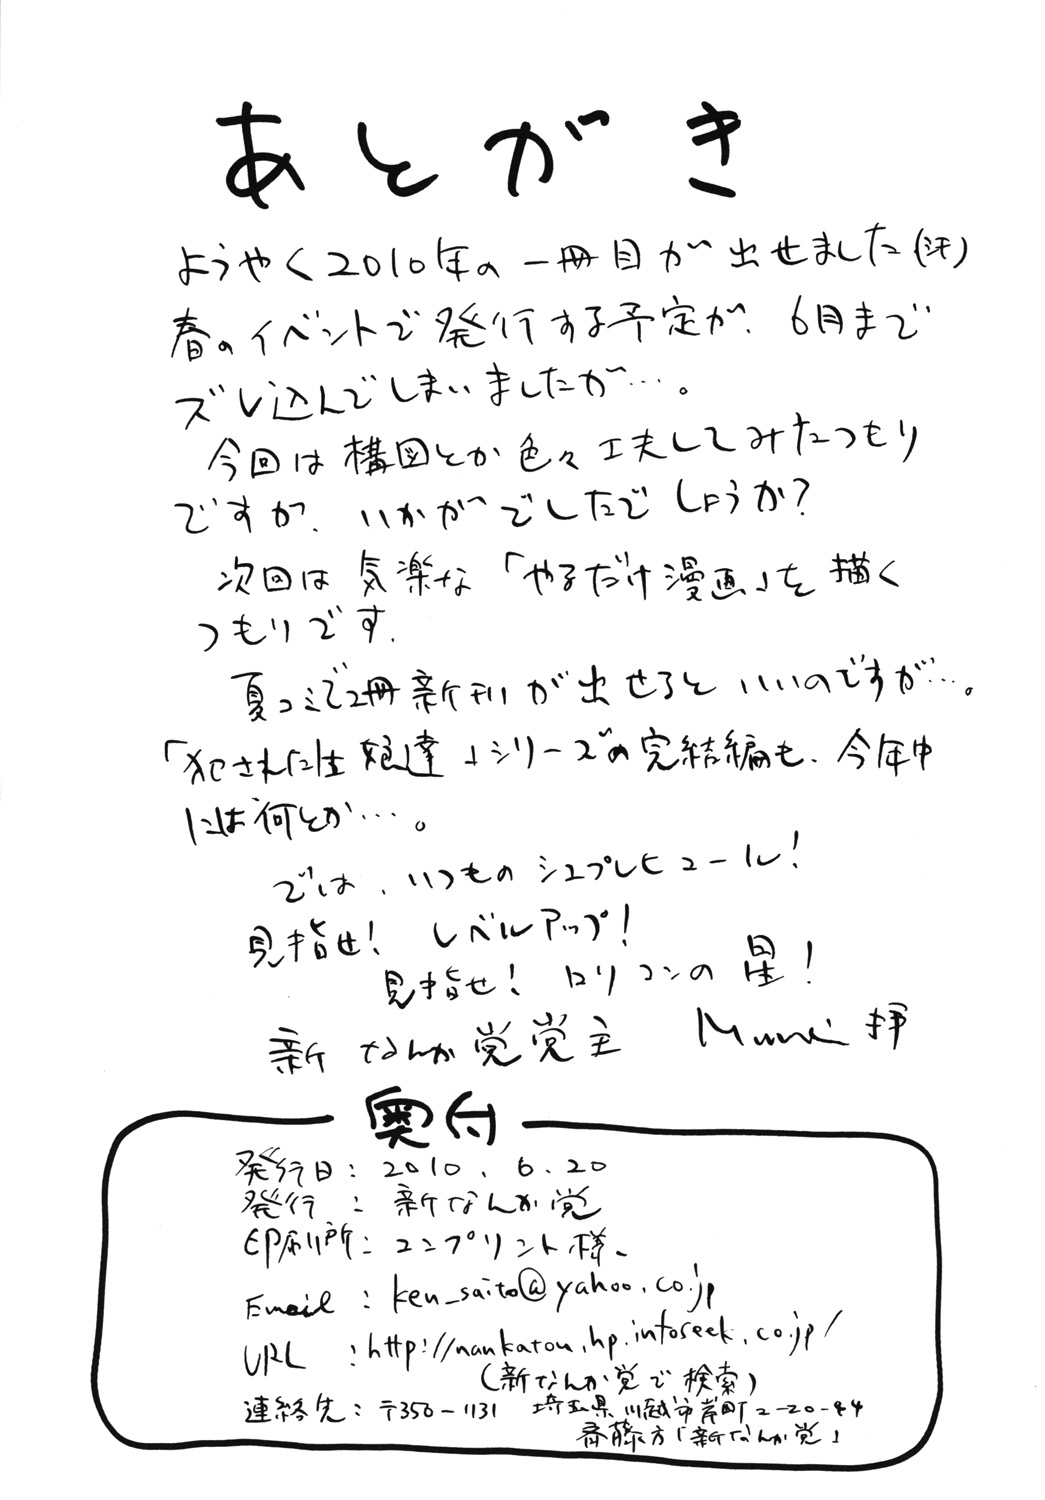 あとがき
ようやく2010年の一冊目が出せました(汗)
春のイベントで発行する予定が、6月まで
ズレ込んでしまいましたが…。
今回は構図とか色々工夫してみたつもり
ですが、いかがでしたでしょうか?
次回は気楽な「やるだけ漫画」を描く
つもりです。
夏コミで2冊新刊が出せるといいのですが…。
「犯されに生娘達」シリーズの完結編も、今年中
には何とか…。
では、いつものシュプレヒコール!
見指せ! レベルアップ!
見指せ! ロリコンの星!
新なんか党党主 Mumei 拝
奥付
発行日:2010.6.20
発行 :新なんか党
印刷所:コンプリント様
Email :ken_saito@yahoo.co.jp
URL :http://nankatou.hp.infoseek.co.jp/
(新なんか党で検索)
連絡先:〒350-1131 埼玉県川越市岸町2-20-44
斉藤方「新なんか党」